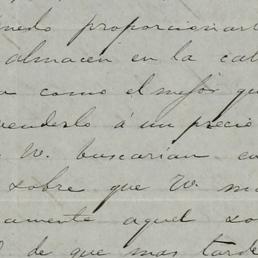 proporcionart
almacén en la cal
a como el mejor qu
venderlo á un precio
V. buscarian en
sobre que V. m
amente aquel so
de que mas tarde